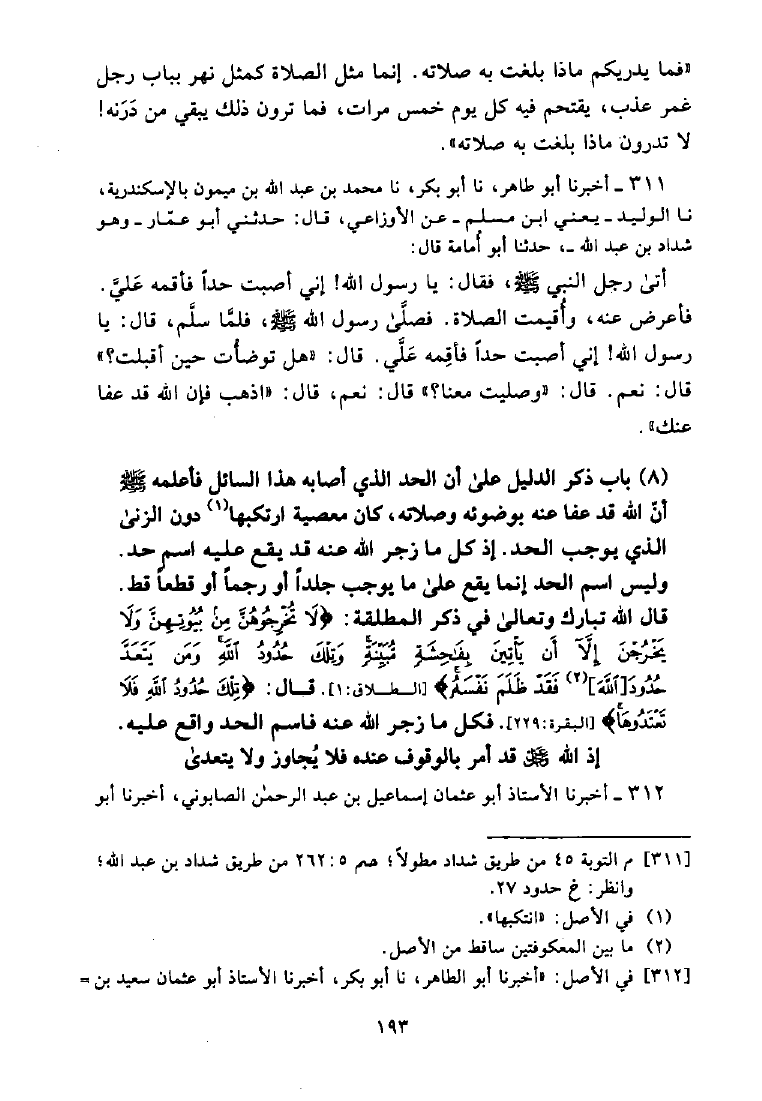 «فما يدريكم ماذا بلغت به صلاته. إنما مثل الصلاة كمثل نهر بباب رجل
غمر عذب، يقتحم فيه كل يوم خمس مرات، فما ترون ذلك يبقي من دَرَنه!
لا تدرون ماذا بلغت به صلاته».
٣١١ ـ أخبرنا أبو طاهر، نا أبو بكر، نا محمد بن عبد الله بن ميمون بالإسكندرية،
نا الوليد ـ يعني ابن مسلم ـ عن الأوزاعي، قال: حدثني أبو عمّار ـ وهو
شداد بن عبد الله ـ، حدثنا أبو أُمامة قال:
أتىٰ رجل النبي ﷺ، فقال: يا رسول الله! إني أصبت حداً فأقمه عَليَّ.
فأعرض عنه، وأُقيمت الصلاة. فصلَّىٰ رسول الله ﷺ، فلمَّا سلَّم، قال: يا
رسول الله! إني أصبت حداً فأقِمه عَلَّي. قال: «هل توضأت حين أقبلت؟»
قال: نعم. قال: «وصليت معنا؟» قال: نعم، قال: «اذهب فإن الله قد عفا
عنك».
(٨) باب ذكر الدليل علىٰ أن الحد الذي أصابه هذا السائل فأعلمه ﷺ
أنّ الله قد عفا عنه بوضوئه وصلاته، كان معصية ارتكبها(١) دون الزنىٰ
الذي يوجب الحد. إذ كل ما زجر الله عنه قد يقع عليه اسم حد.
وليس اسم الحد إنما يقع علىٰ ما يوجب جلداً أو رجماً أو قطعاً قط.
قال الله تبارك وتعالىٰ في ذكر المطلقة: ﴿لَا تُخْرِجُوهُنَّ مِنْ بُيُوتِهِنَّ وَلَا
يَخْرُجْنَ إِلَّآ أَن يَأْتِينَ بِفَٰحِشَةٍ مُّبَيِّنَةٍ وَتِلْكَ حُدُودُ ٱللَّهِ وَمَن يَتَعَدَّ
حُدُودَ[ٱللَّهِ](٢) فَقَدْ ظَلَمَ نَفْسَهُ﴾ [الطلاق:١]. قال: ﴿تِلْكَ حُدُودُ ٱللَّهِ فَلَا
تَعْتَدُوهَا﴾ [البقرة:٢٢٩]. فكل ما زجر الله عنه فاسم الحد واقع عليه.
إذ الله ﷻ قد أمر بالوقوف عنده فلا يُجاوز ولا يتعدىٰ
٣١٢ ـ أخبرنا الأستاذ أبو عثمان إسماعيل بن عبد الرحمٰن الصابوني، أخبرنا أبو
[٣١١] م التوبة ٤٥ من طريق شداد مطولاً؛ حم ٥: ٢٦٢ من طريق شداد بن عبد الله؛
وانظر: خ حدود ٢٧.
(١) في الأصل: «انتكبها».
(٢) ما بين المعكوفتين ساقط من الأصل.
[٣١٢] في الأصل: «أخبرنا أبو الطاهر، نا أبو بكر، أخبرنا الأستاذ أبو عثمان سعيد بن =
١٩٣